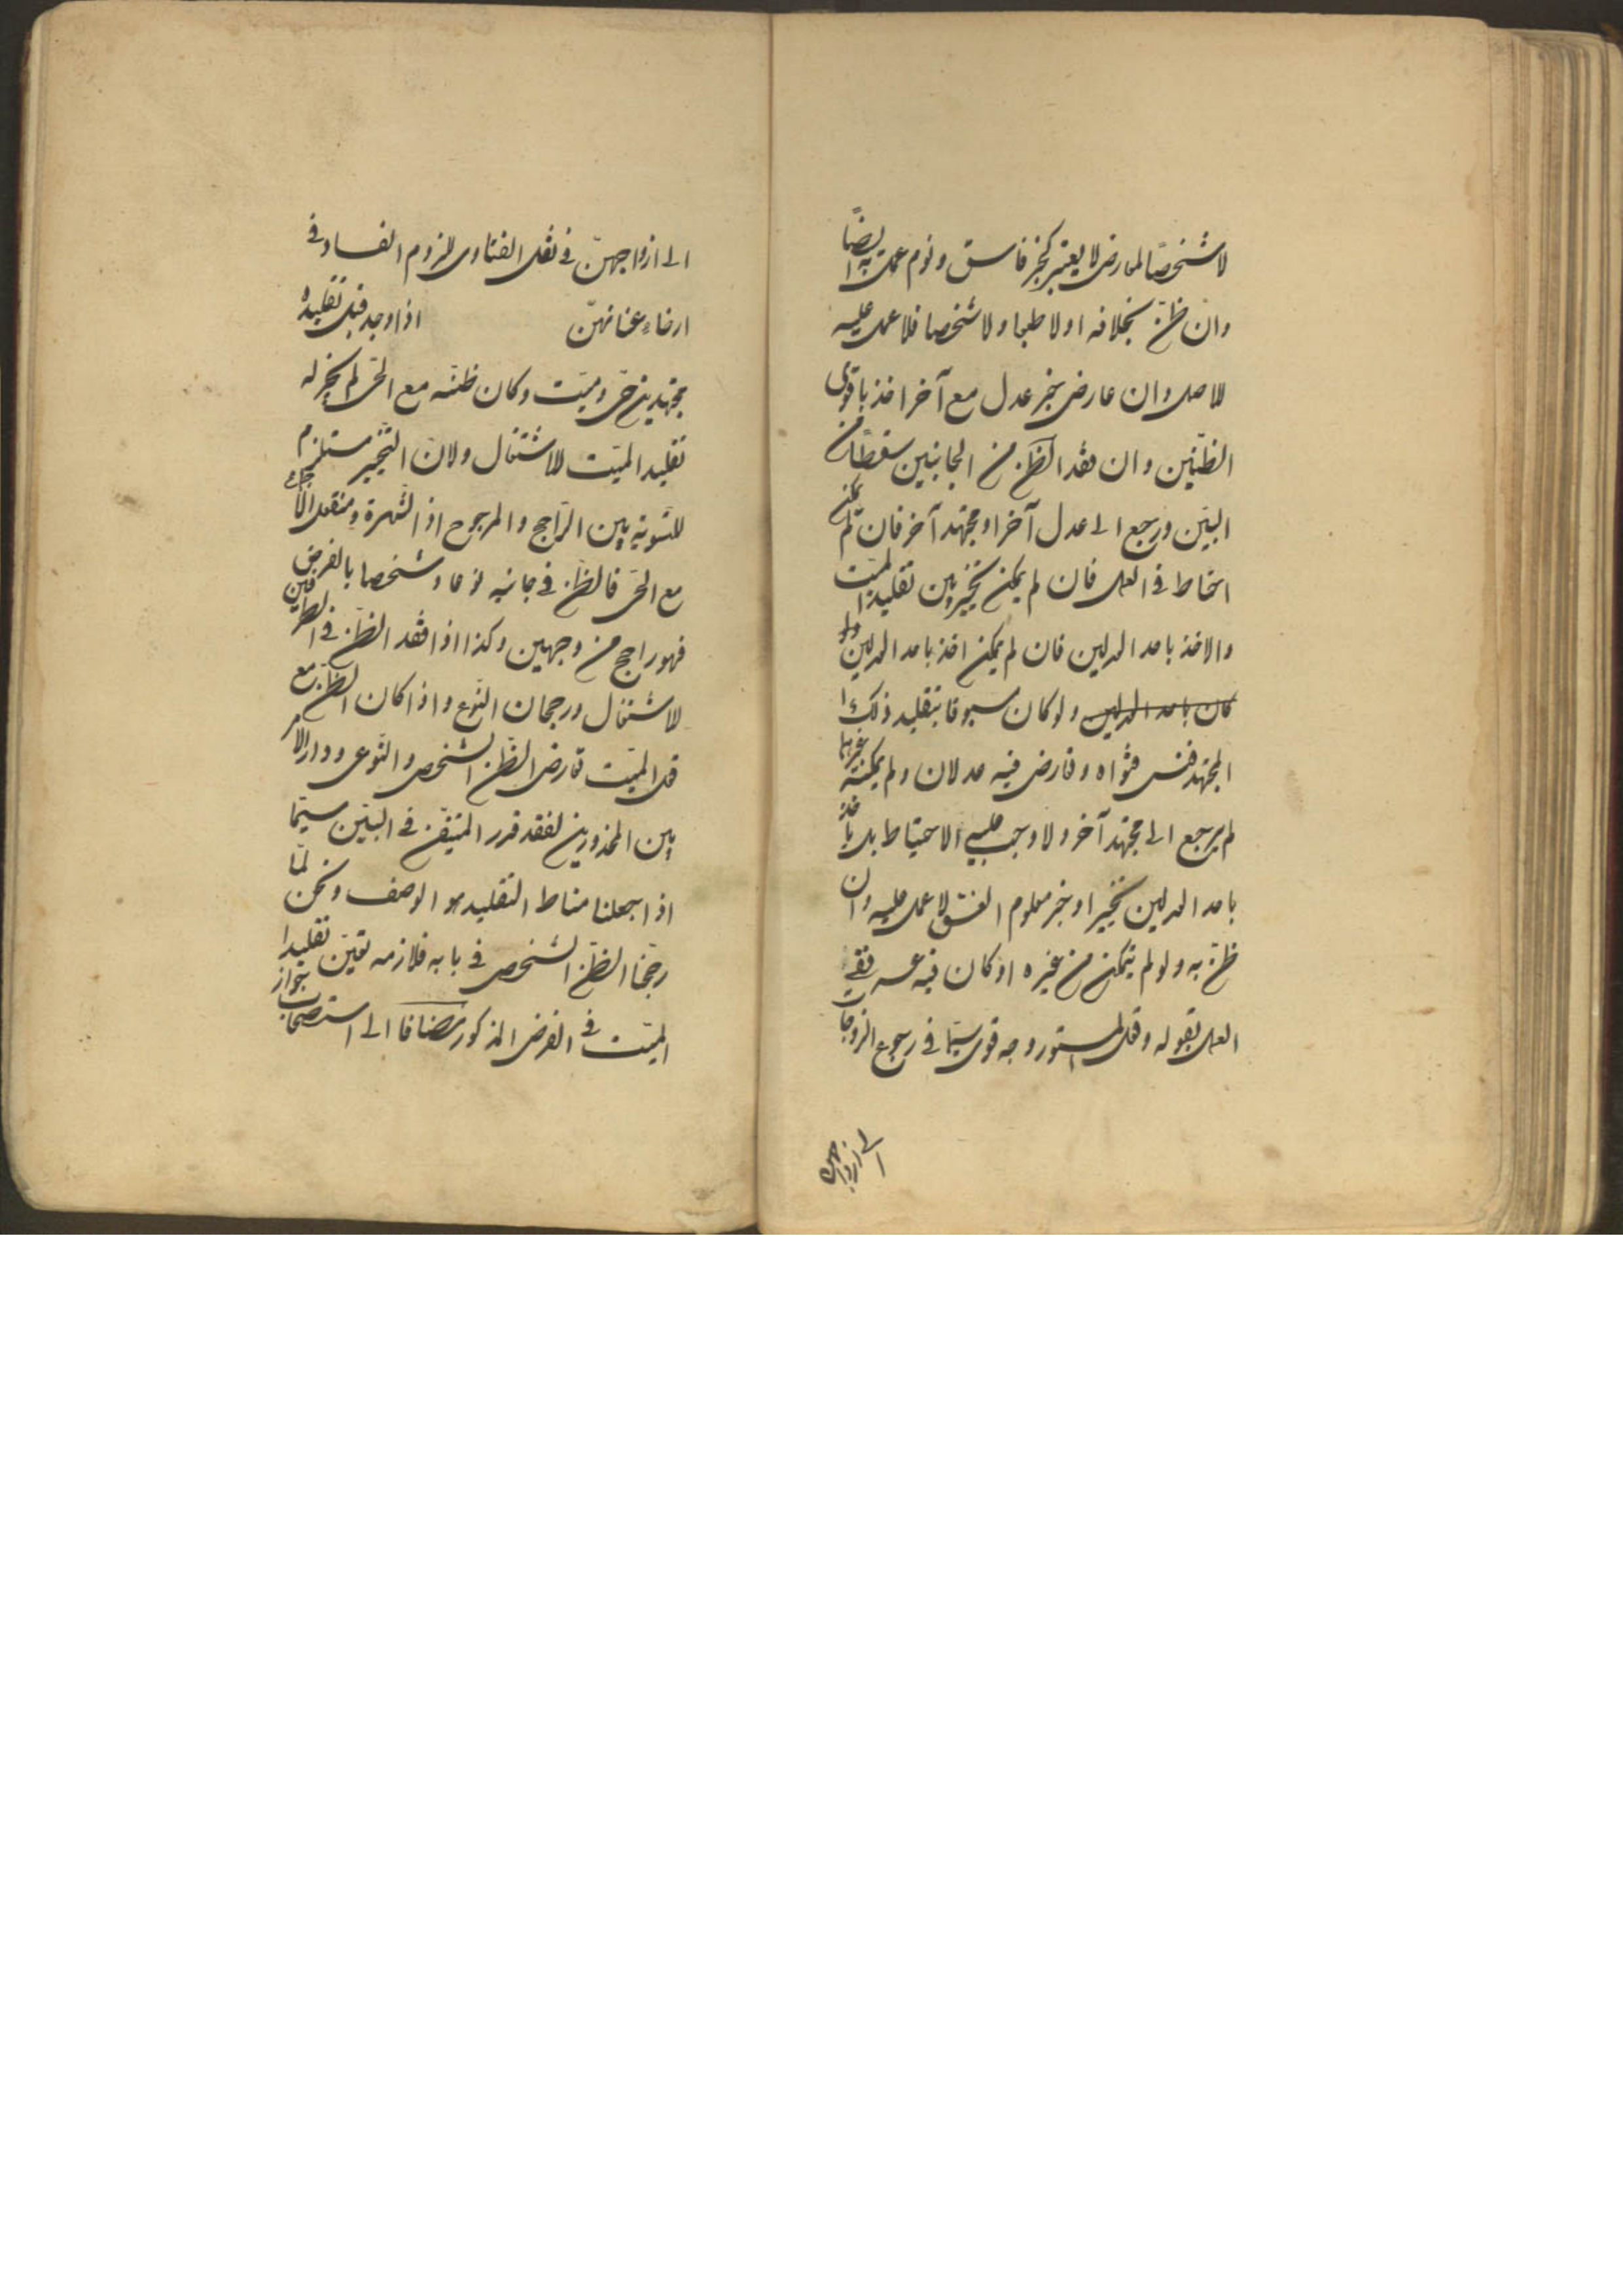 لا شخصا لمعارض لا يعتبر كخبر فاسق ونوم عمل به ايضا
وان ظن بخلافه اولا طبعا ولا شخصا فلا عمل عليه
للاصل وان عارض بخبر عدل مع آخر اخذ باقوى
الظنين وان فقد الظن من الجانبين سقطا من
البين ورجع الى عدل آخر او مجتهد آخر فان لم يمكن
احتاط في العمل فان لم يمكن تخير بين تقليد الميت
والاخذ باحد العدلين فان لم يمكن اخذ باحد العدلين ولو
كان باحد العدلين ولو كان مسبوقا بتقليد ذلك
المجتهد فنسى فتواه وتعارض فيه عدلان ولم يمكنه غيرهما
لم يرجع الى مجتهد آخر ولا وجب عليه الاحتياط بل ياخذ
باحد العدلين تخييرا وخبر معلوم الفسق لا عمل عليه وان
ظن به ولو لم يتمكن من غيره او كان فيه عسر ففي
العمل بقوله وقول المستور وجه قوى سيما في رجوع الزوجات
الى ازواجهن
الى ازواجهن في نقل الفتاوى للزوم الفساد في
ارخاء عنانهن اذا وجد قبل تقليده
مجتهدين حى وميت وكان ظنه مع الحى لم يجز له
تقليد الميت للاشتغال ولان التخيير مستلزم
للتسوية بين الراجح والمرجوح اذ الشهرة ومنقول الاجماع
مع الحى فالظن في جانبه نوعا وشخصا بالفرض
فهو راجح من وجهين وكذا اذا فقد الظن في الطرفين
للاشتغال ورجحان النوع واذا كان الظن مع
قول الميت تعارض الظن الشخصى والنوعى ودار الامر
بين المحذورين لفقد قدر المتيقن في البين سيما
اذا جعلنا مناط التقليد هو الوصف ونحن لما
رجحنا الظن الشخصى في بابه فلازمه تعين تقليد
الميت في الفرض المذكور مضافا الى استصحاب جواز